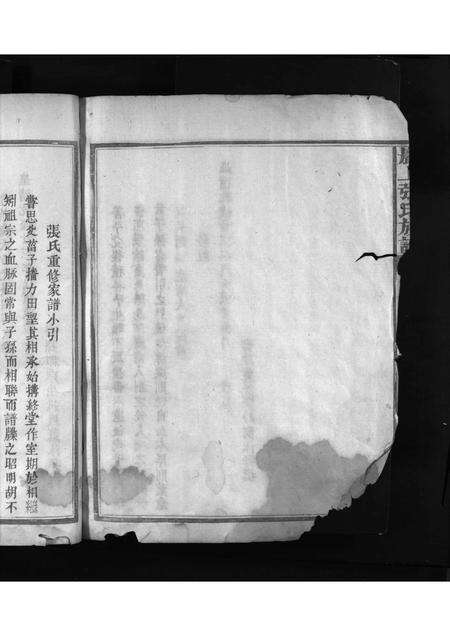 張氏族譜
張氏重修家譜小引
嘗思父菑子播力田望其相承始搆終堂作室期於相繼
矧祖宗之血脉固常與子孫而相聯而譜牒之昭明胡不